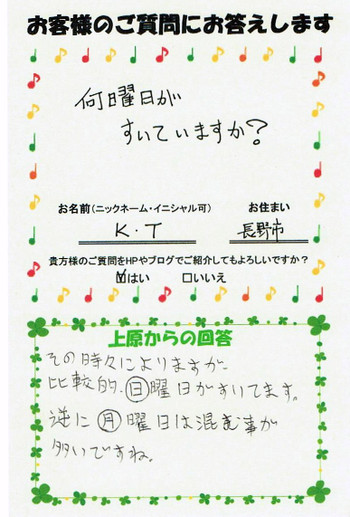 お客様のご質問にお答えします
何曜日が
すいていますか?
お名前(ニックネーム・イニシャル可)
お住まい
K・T
長野市
貴方様のご質問をHPやブログでご紹介してもよろしいですか?
☑はい □いいえ
上原からの回答
その時々によりますが、
比較的、日曜日がすいてます。
逆に月曜日は混む事が
多いですね。